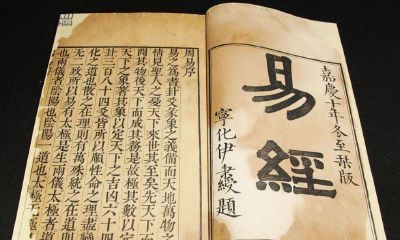 嘉慶十年冬至栞版
易經
寧化伊秉綬題
周易序
易之為書卦爻彖象之義備而天地萬物之
情見聖人之憂天下來世其至矣先天下而
開其物後天下而成其務是故極其數以定
天下之象著其象以定天下之吉凶六十四
卦三百八十四爻皆所以順性命之理盡變
化之道也散之在理則有萬殊統之在道則
無二致所以易有太極是生兩儀太極者道
也兩儀者陰陽也陰陽一道也太極无